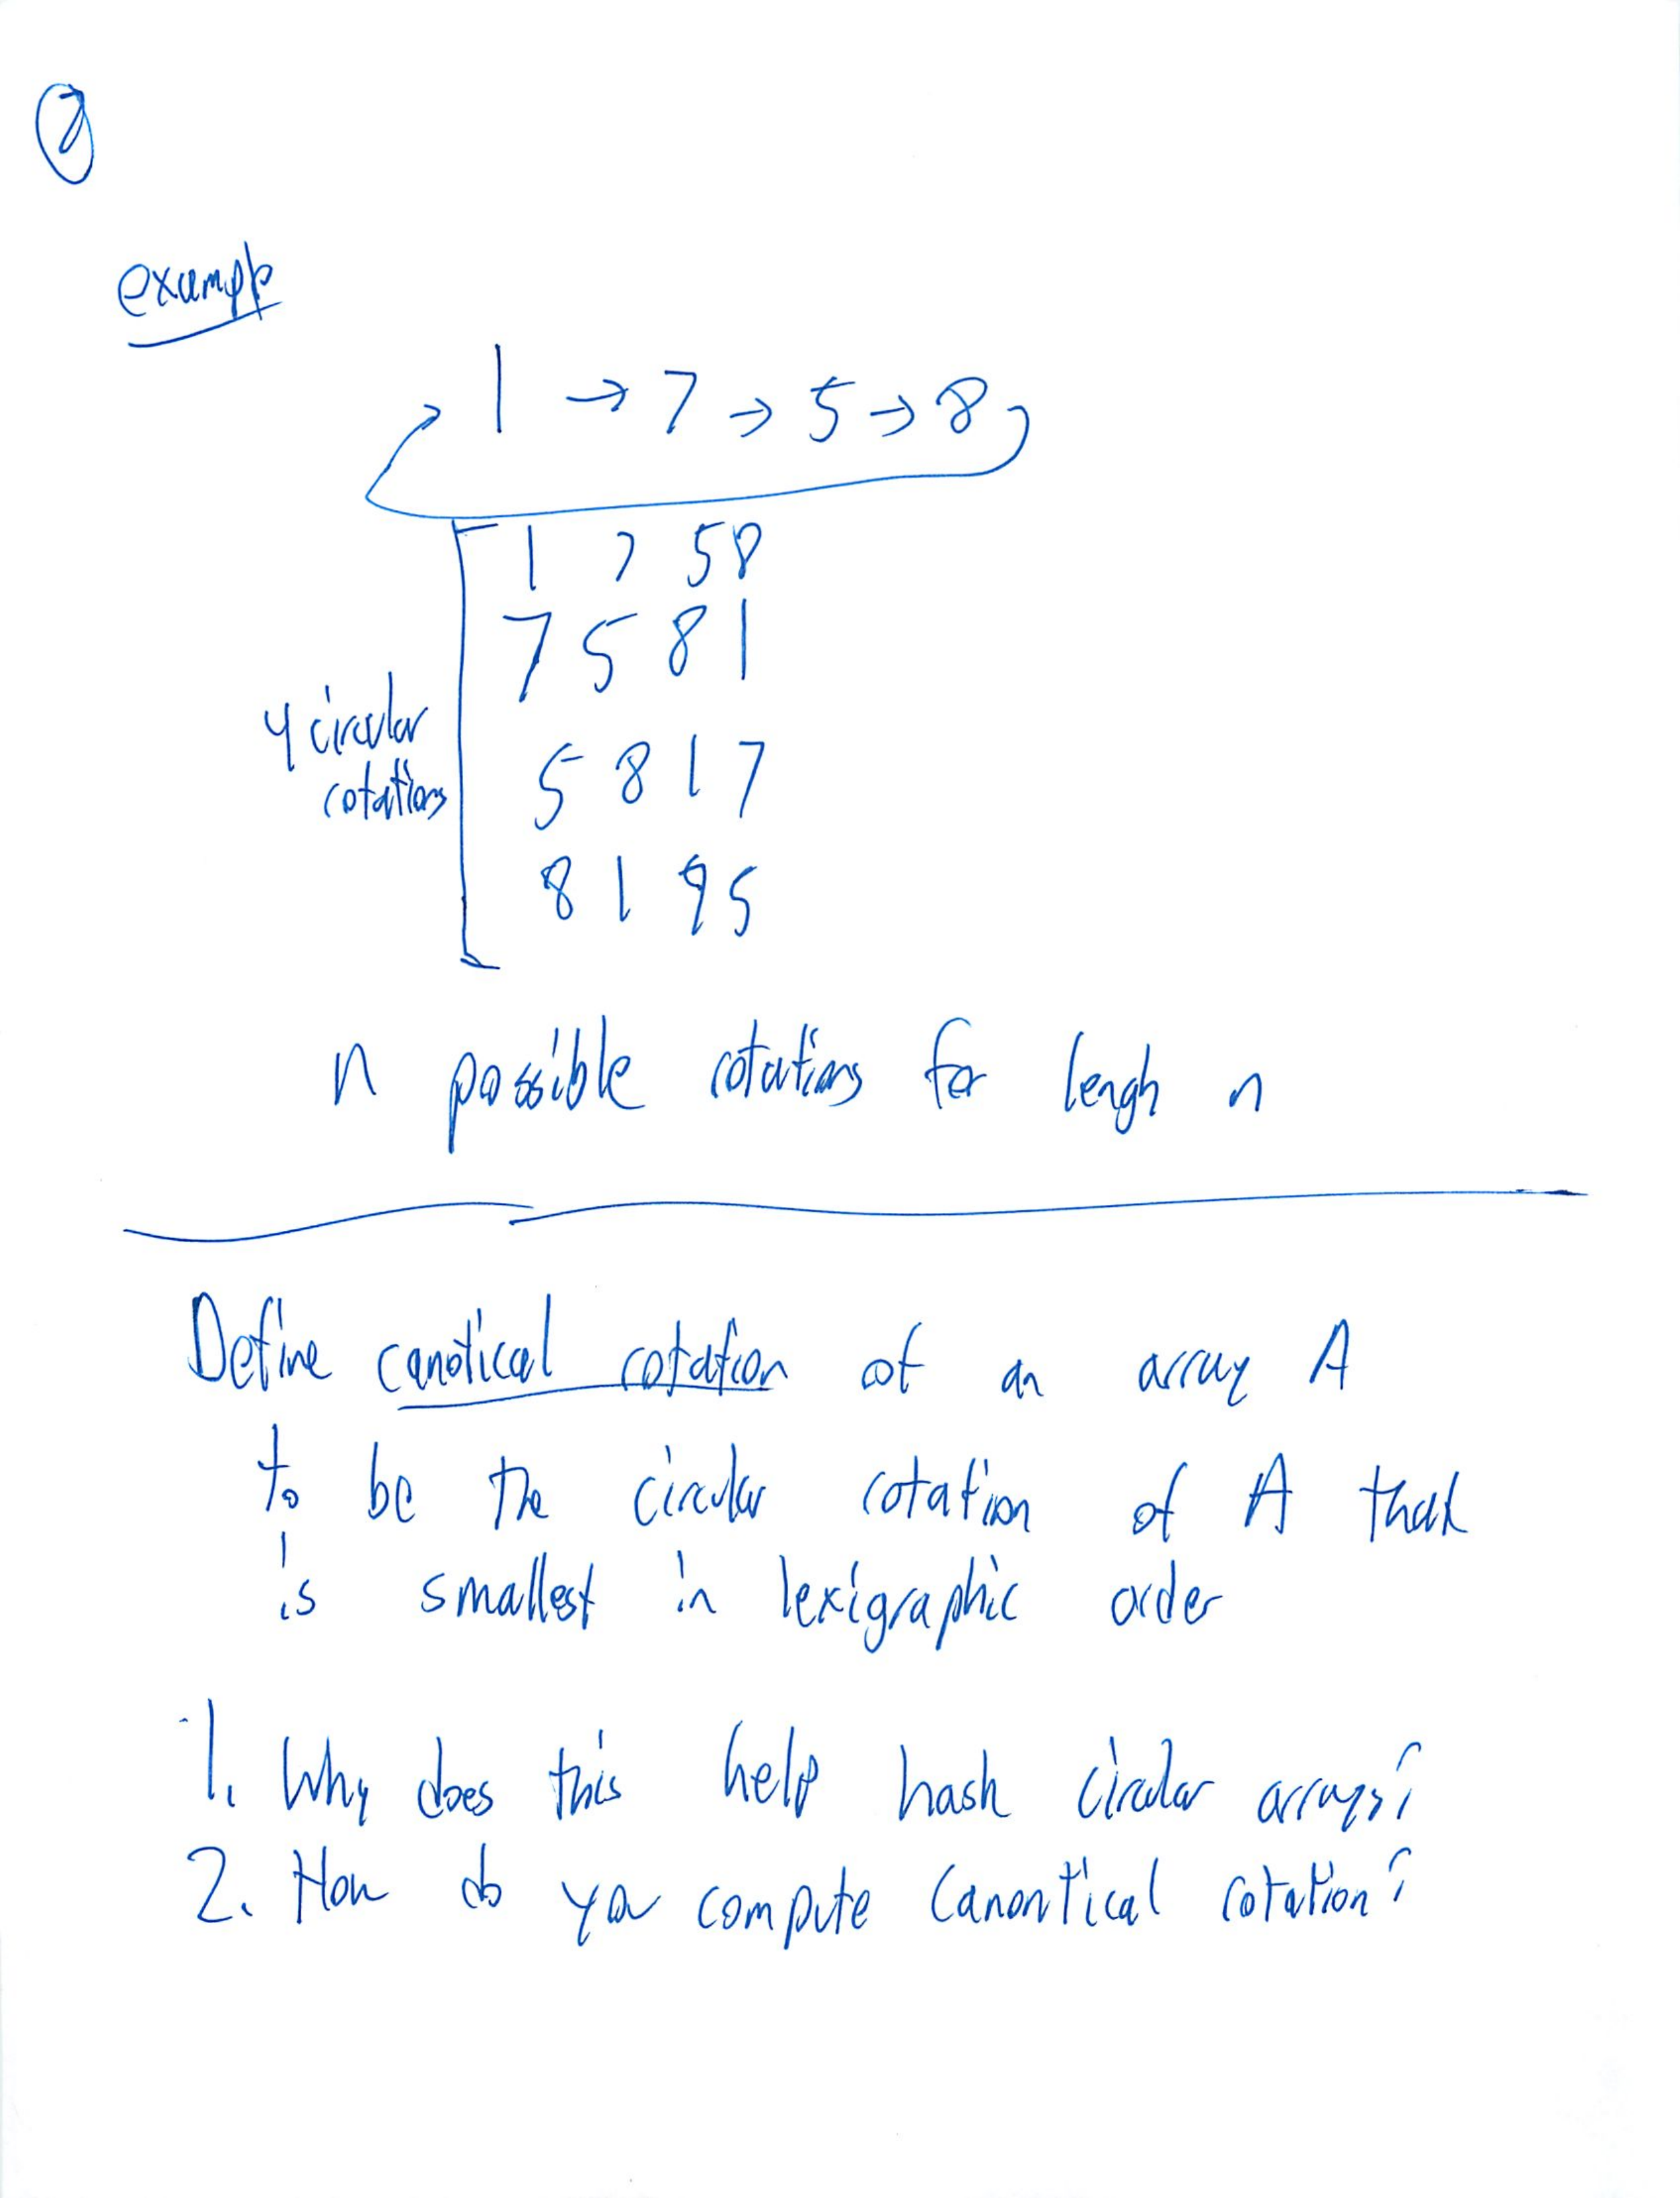 2
example
1 → 7 → 5 → 8
1 7 5 8
7 5 8 1
4 circular
rotations
5 8 1 7
8 1 9 5
n possible rotations for lengh n
Define canotical rotation of an array A
to be the circular rotation of A that
is smallest in lexigraphic order
1. Why does this help hash circular arrays?
2. How do you compute canontical rotation?